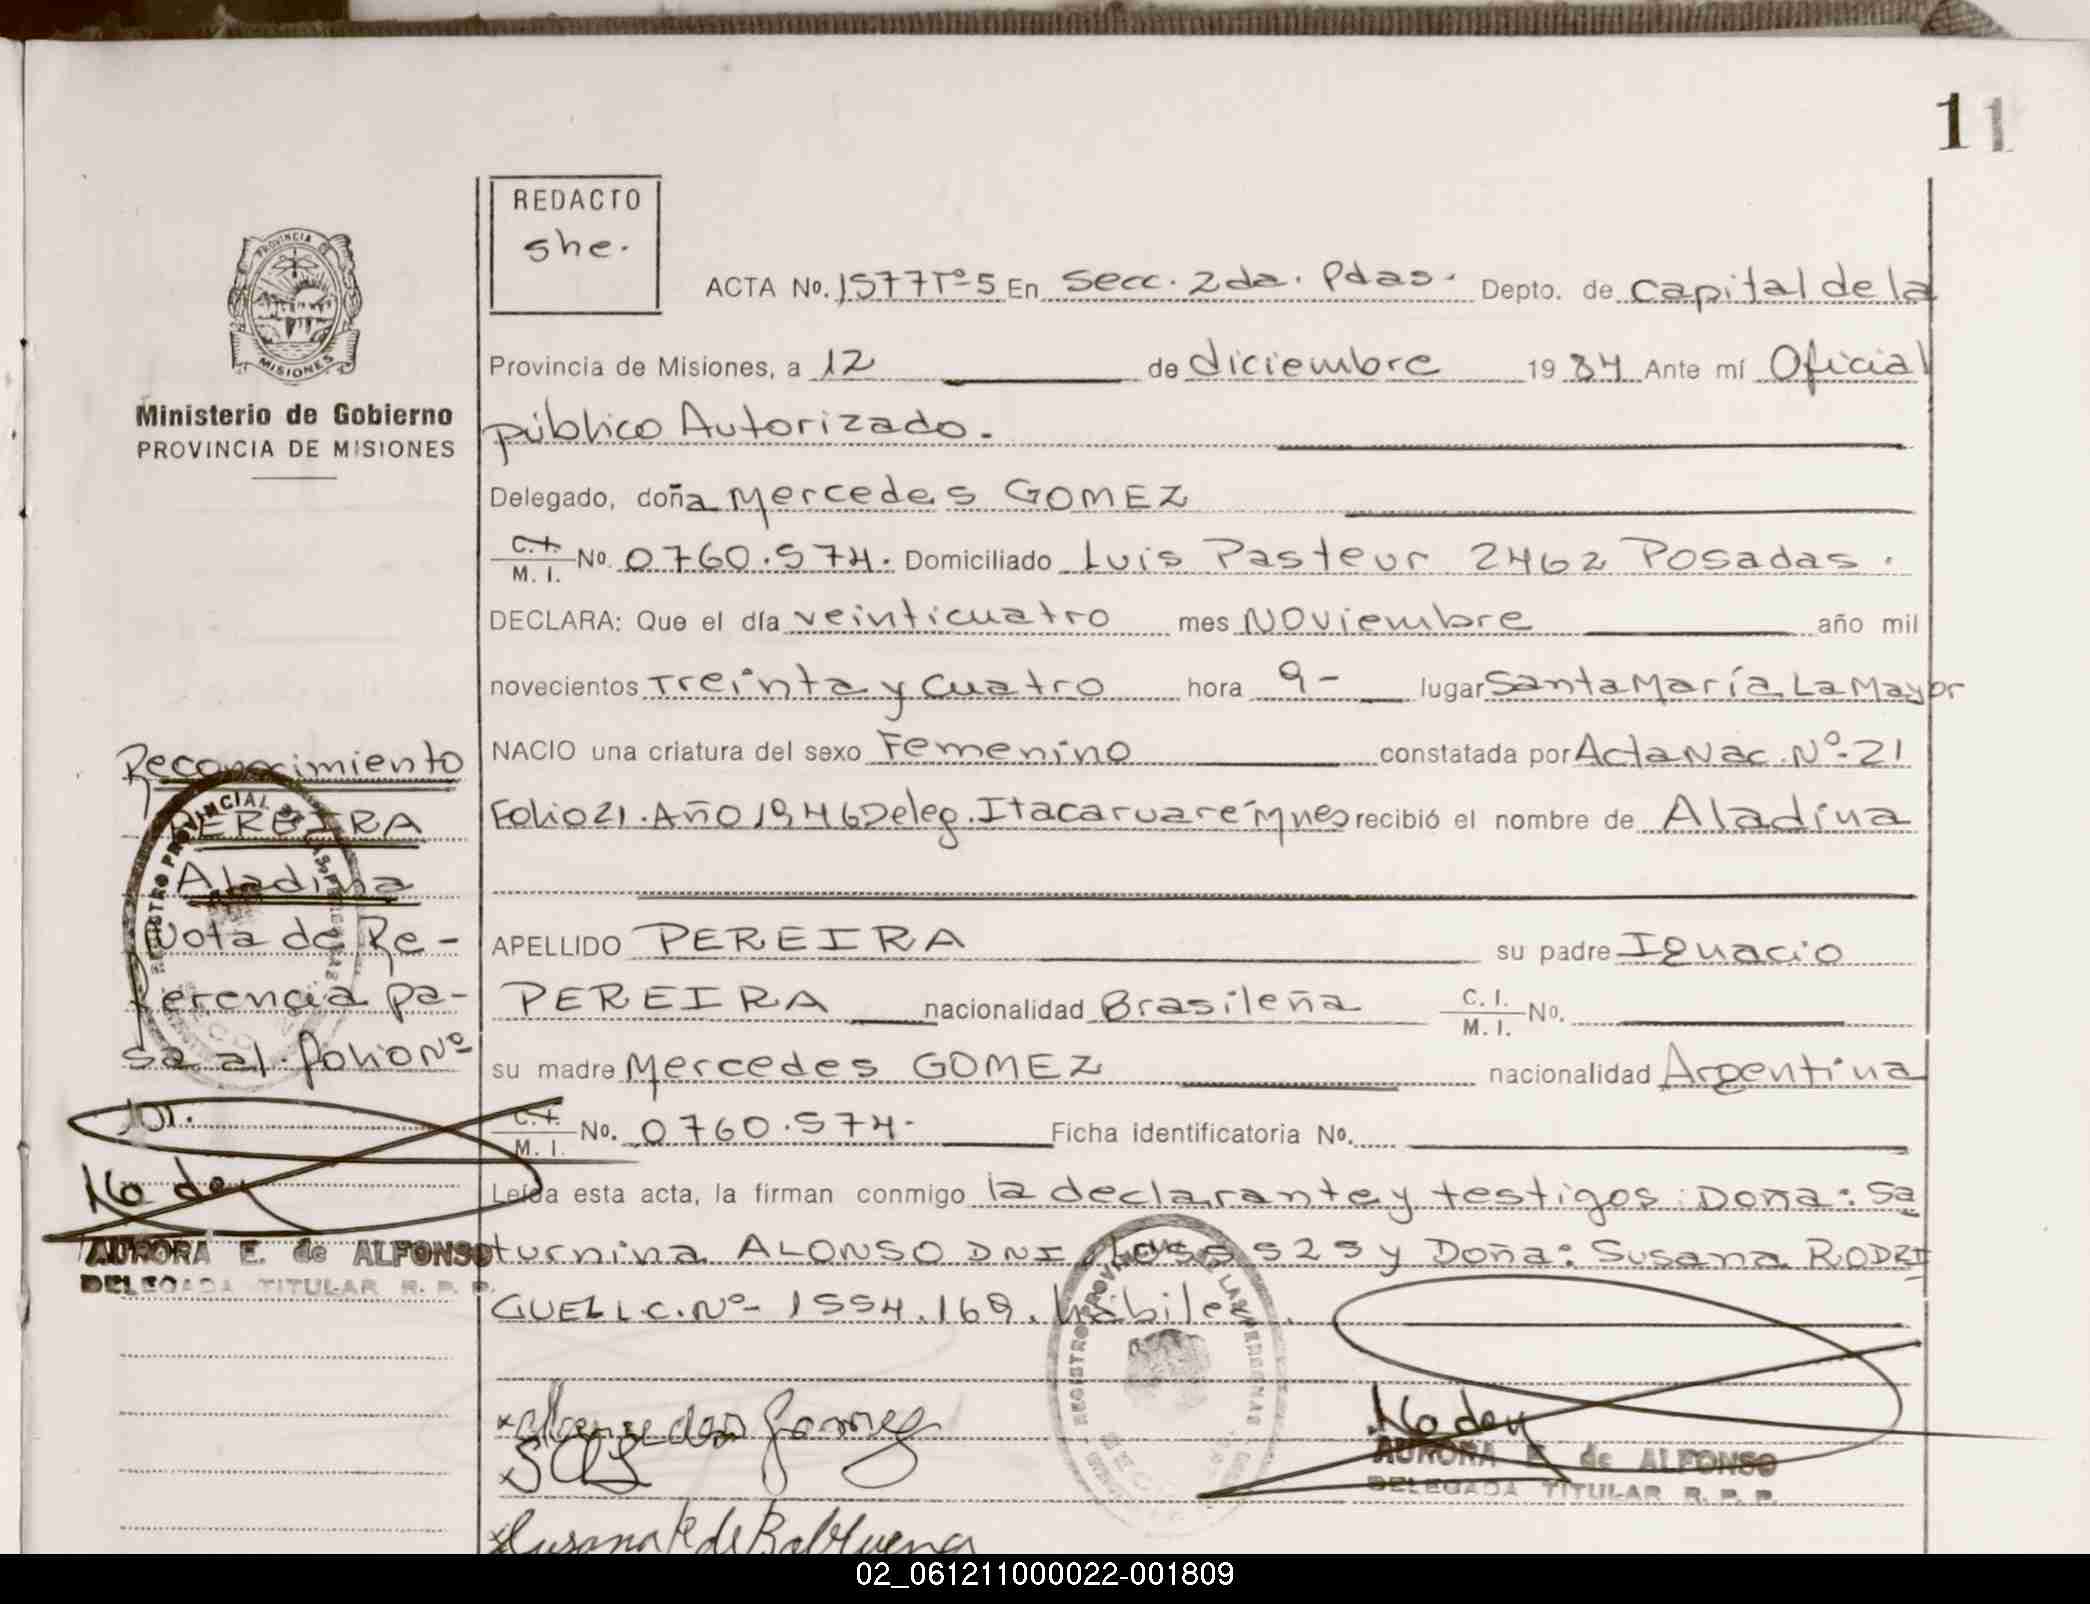 11
REDACTO
she.
PROVINCIA DE
MISIONES
Ministerio de Gobierno
PROVINCIA DE MISIONES
ACTA No. 1577 Tº 5 En Secc. 2da. Pdas. Depto. de Capital de la
Provincia de Misiones, a 12 de diciembre 1984 Ante mí Oficial
público Autorizado.
Delegado, doña Mercedes GOMEZ
C.I. / M. I. No. 0760.574. Domiciliado Luis Pasteur 2462 Posadas.
DECLARA: Que el día veinticuatro mes Noviembre año mil
novecientos Treinta y cuatro hora 9- lugar Santa María La Mayor
NACIO una criatura del sexo Femenino constatada por Acta Nac. Nº- 21
Folio 21. Año 1946 Deleg. Itacaruaré Mnes recibió el nombre de Aladina
APELLIDO PEREIRA su padre Ignacio
PEREIRA nacionalidad Brasileña C. I. / M. I. No.
su madre Mercedes GOMEZ nacionalidad Argentina
C.I. / M. I. No. 0760.574- Ficha identificatoria No.
Leída esta acta, la firman conmigo la declarante y testigos: Doña: Sa
turnina ALONSO DNI y Doña: Susana RODRI
GUEZ L.C. Nº- 1554.169. hábiles.
Reconocimiento
PEREIRA
Aladina
Nota de Re-
ferencia pa-
sa al folio Nº
101.
AURORA E. de ALFONSO
DELEGADA TITULAR R. P. P.
REGISTRO PROVINCIAL DE LAS PERSONAS
Mercedes Gomez
REGISTRO PROVINCIAL DE LAS PERSONAS
AURORA E. de ALFONSO
DELEGADA TITULAR R. P. P.
Susana R de
02_061211000022-001809